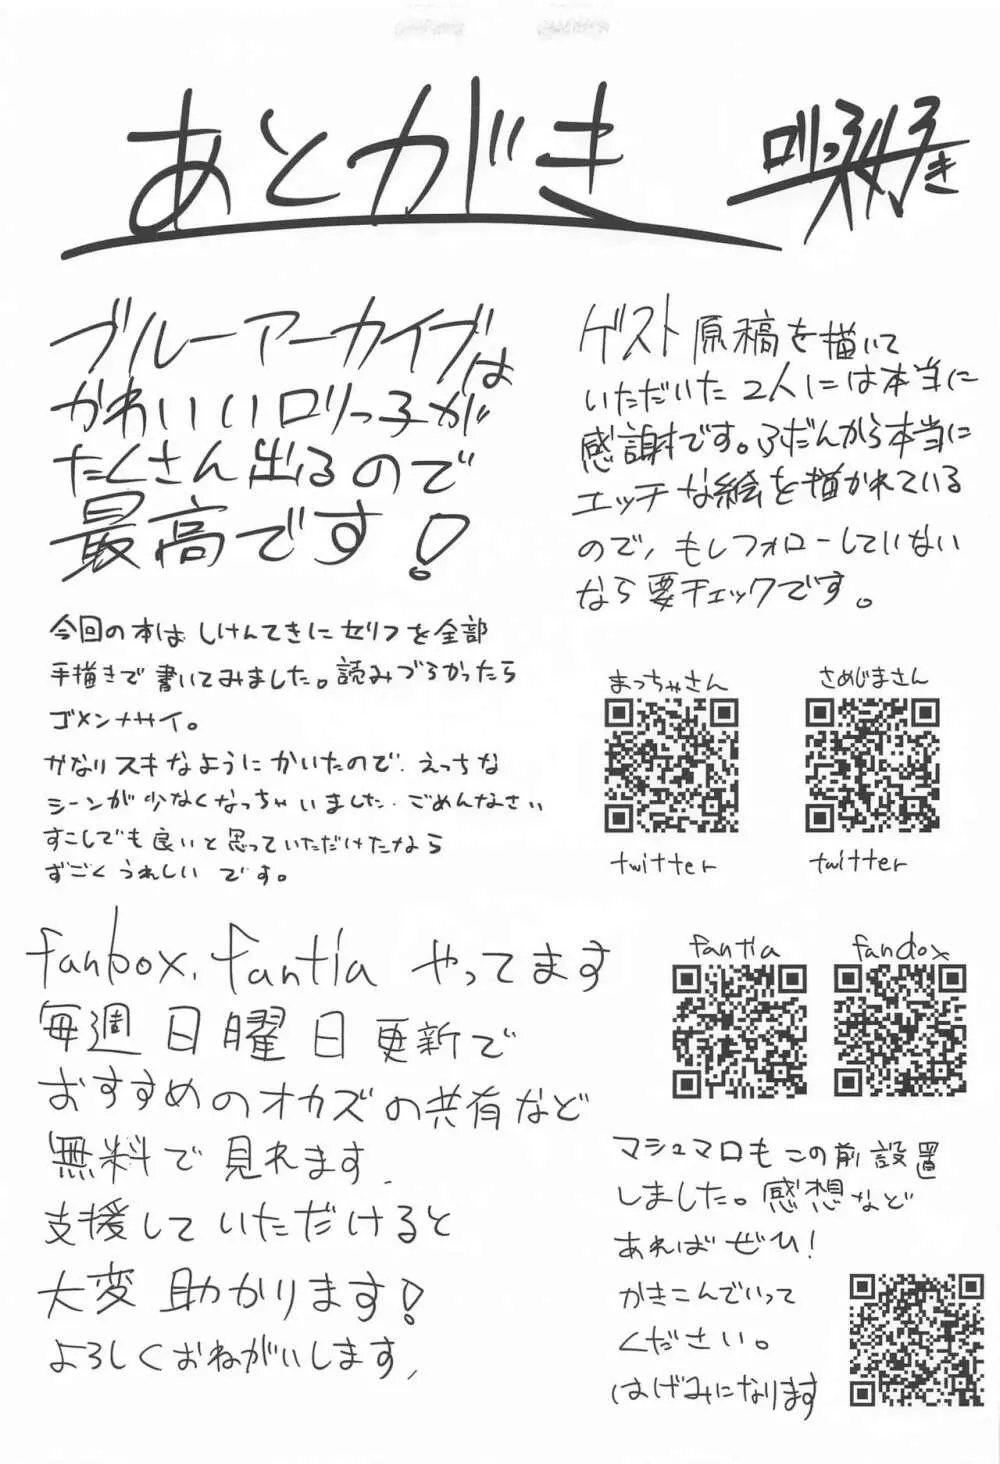 あとがき
ロリっ子好き
ブルーアーカイブは
かわいいロリっ子が
たくさん出るので
最高です!
今回の本はしけんてきにセリフを全部
手描きで書いてみました。読みづらかったら
ゴメンナサイ。
かなりスキなようにかいたので、えっちな
シーンが少なくなっちゃいました、ごめんなさい
すこしでも良いと思っていただけたなら
すごくうれしいです。
ゲスト原稿を描いて
いただいた2人には本当に
感謝です。ふだんから本当に
エッチな絵を描かれている
ので、もしフォローしていない
なら要チェックです。
まっちゃさん
さめじまさん
twitter
twitter
fanbox、fantia やってます
毎週日曜日更新で
おすすめのオカズの共有など
無料で見れます、
支援していただけると
大変助かります!
よろしくおねがいします、
fantia
fanbox
マシュマロもこの前設置
しました。感想など
あればぜひ!
かきこんでいって
ください。
はげみになります